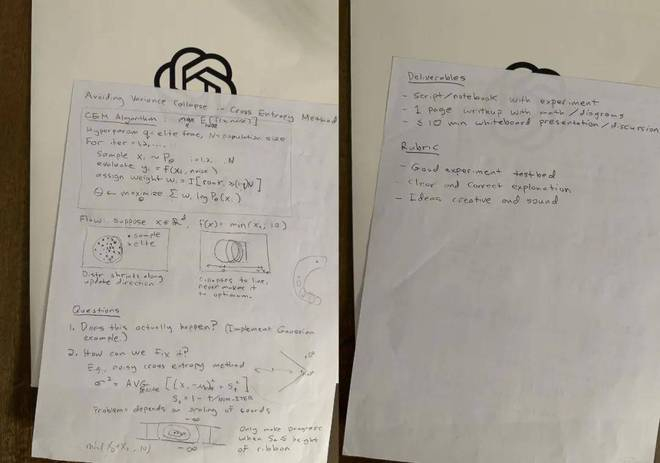 Avoiding Variance Collapse in Cross Entropy Method
CEM Algorithm: max E[f(x, noise)]
Hyperparam q = elite frac, N = population size
For iter = 1,2,...
Sample xᵢ ~ Pθ i=1,2,...N
evaluate yᵢ = f(xᵢ, noise)
assign weight wᵢ = I[rank
θ ← maximize Σ wᵢ log Pθ(xᵢ)
Flaw: suppose x ∈ ℝᵈ, f(x) = min(x₁, 10)
• sample
x elite
Distr shrinks along
update direction
collapses to line,
never makes it
to optimum.
Questions
1. Does this actually happen? (Implement Gaussian
example.)
2. How can we fix it?
E.g., noisy cross entropy method
σ² = AVG elite
Sₜ = 1 - t/
Problem: depends on scaling of coords
-∞
-∞
Only makes progress
when Sₜ ≤ height
of ribbon
min( , 10)
Deliverables
- script/notebook with experiment
- 1 page writeup with math/diagrams
- ≤ 10 min whiteboard presentation/discussion
Rubric
- Good experiment testbed
- Clear and correct explanation
- Ideas creative and sound